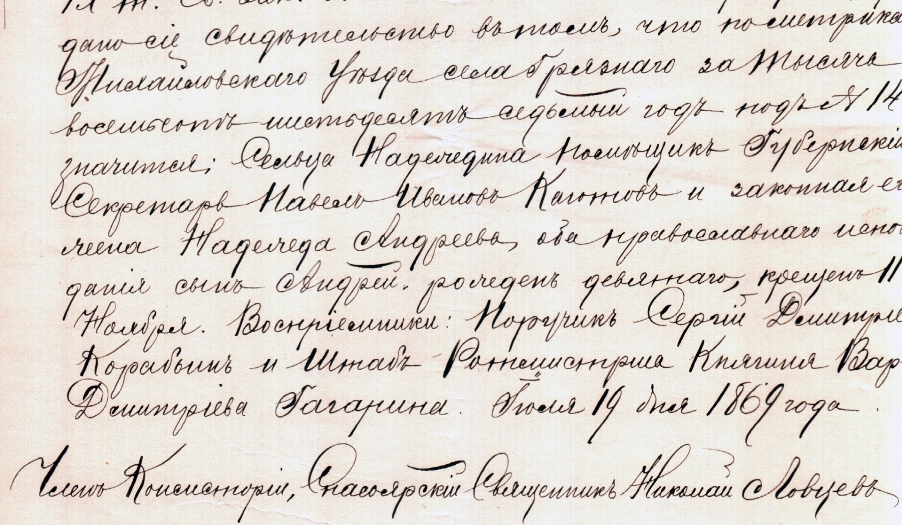 дано сіе свидѣтельство въ томъ, что по метрика
Михайловскаго Уѣзда села Грязнаго за тысяча
восемьсотъ шестьдесятъ седьмый годъ подъ № 14
значится: Сельца Надеждина помѣщикъ Губернскій
Секретарь Павелъ Ивановъ Каюновъ и законная ег
жена Надежда Андреева, оба православнаго испо
данія сынъ Андрей. рожденъ девятаго, крещенъ 11
Ноября. Воспріемники: Поручикъ Сергій Дмитріе
Корабьинъ и Штабъ-Ротмистрша Княгиня Вар
Дмитріева Гагарина. Іюля 19 дня 1869 года.
Членъ Консисторіи, Спасоярскій Священникъ Николай Ловцевъ